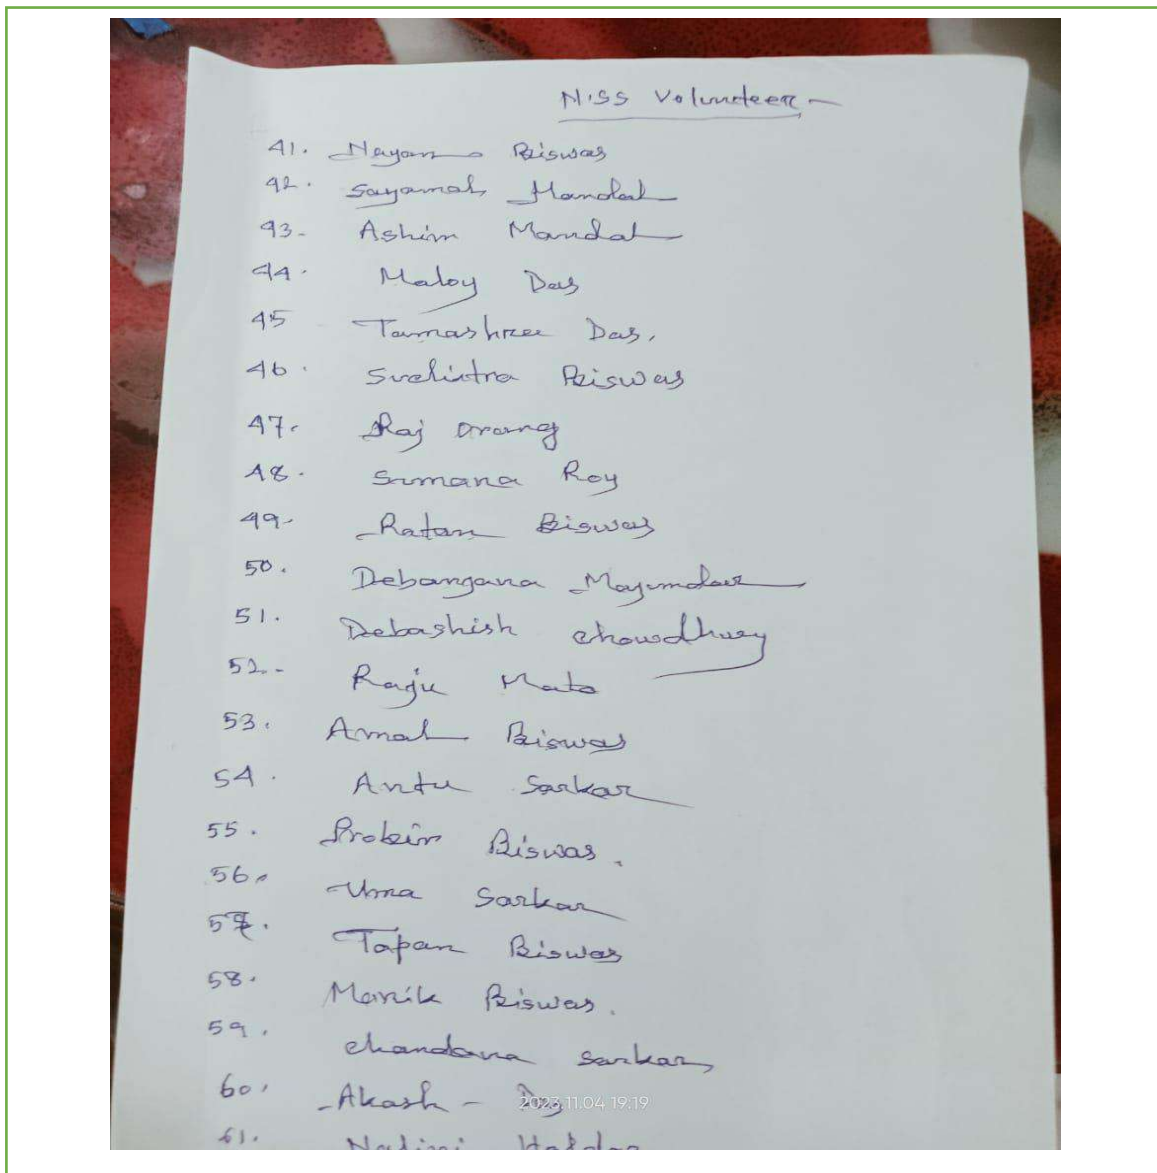 N.SS Volunteer
41. Nayan Biswas
42. Sayamal Mandal
43. Ashim Mandal
44. Maloy Das
45 Tamashree Das.
46. Suchitra Biswas
47. Raj Orang
48. Sumana Roy
49. Ratan Biswas
50. Debangana Majumdar
51. Debashish Chowdhury
52. Raju Mato
53. Amal Biswas
54. Antu Sarkar
55. Probir Biswas.
56. Uma Sarkar
57. Tapan Biswas
58. Manik Biswas.
59. Chandana Sarkar
60. Akash - Das
2023.11.04 19:19
61.